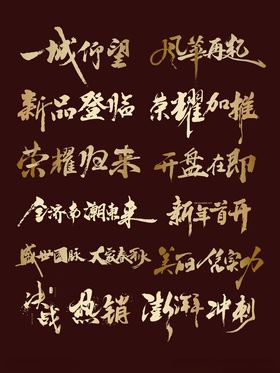 一城仰望 风华再起
新品登临 荣耀加推
荣耀归来 开盘在即
全济南潮东来 新年首开
盛世国脉 大宸春秋 美丽凭实力
决战 热销 澎湃冲刺